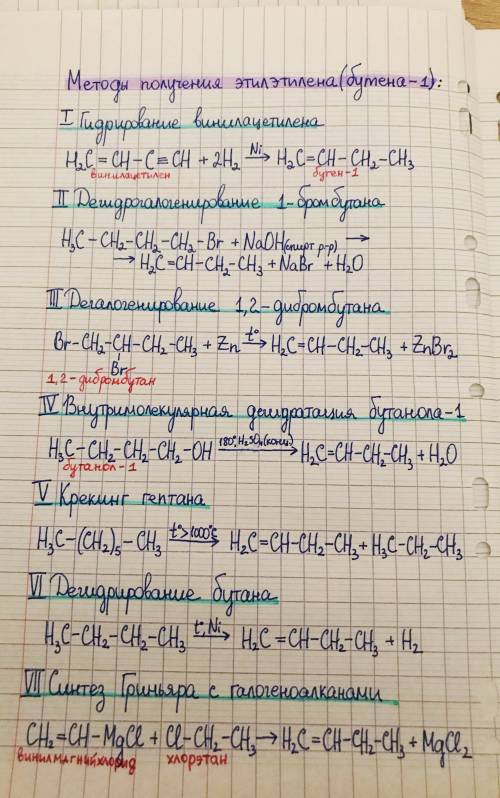 Методы получения этилэтилена (бутена-1):
I Гидрирование винилацетилена
H₂C=CH-C≡CH + 2H₂ →Ni H₂C=CH-CH₂-CH₃
винилацетилен бутен-1
II Дегидрогалогенирование 1-бромбутана
H₃C-CH₂-CH₂-CH₂-Br + NaOH(спирт. р-р) →
→ H₂C=CH-CH₂-CH₃ + NaBr + H₂O
III Дегалогенирование 1,2-дибромбутана
Br-CH₂-CH-CH₂-CH₃ + Zn →t° H₂C=CH-CH₂-CH₃ + ZnBr₂
Br
1,2-дибромбутан
IV Внутримолекулярная дегидратация бутанола-1
H₃C-CH₂-CH₂-CH₂-OH →180°, H₂SO₄(конц.) H₂C=CH-CH₂-CH₃ + H₂O
бутанол-1
V Крекинг гептана
H₃C-(CH₂)₅-CH₃ →t°>1000°C H₂C=CH-CH₂-CH₃ + H₃C-CH₂-CH₃
VI Дегидрирование бутана
H₃C-CH₂-CH₂-CH₃ →t, Ni H₂C=CH-CH₂-CH₃ + H₂
VII Синтез Гриньяра с галогеноалканами
CH₂=CH-MgCl + Cl-CH₂-CH₃ → H₂C=CH-CH₂-CH₃ + MgCl₂
винилмагнийхлорид хлорэтан